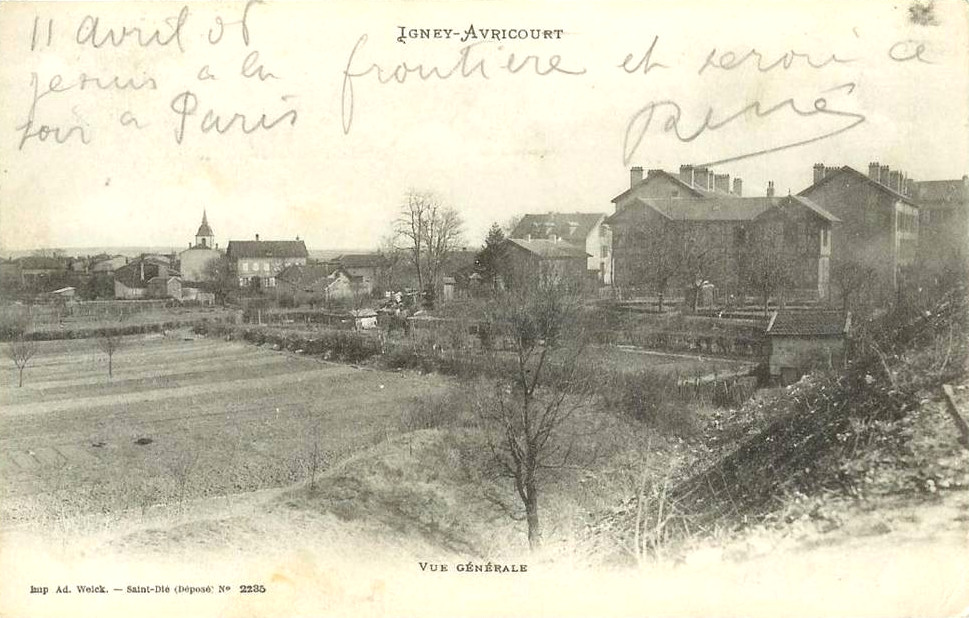 IGNEY-AVRICOURT
11 avril 06
je suis a la frontière et serai ce
soir a Paris
René
VUE GÉNÉRALE
Imp Ad. Weick. — Saint-Dié (Déposé) Nº 2235